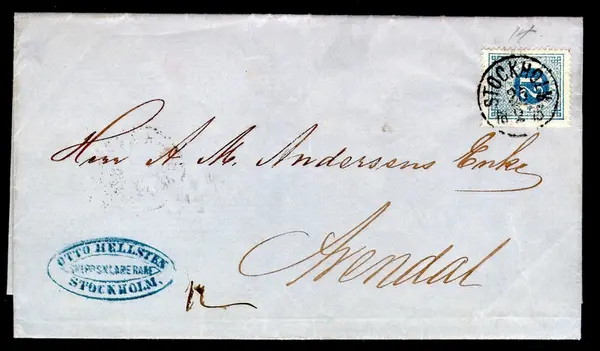 14
STOCKHOLM
12
Herr A. M. Andersens Enke
Arendal
OTTO HELLSTEN
SKEPPSKLARERARE
STOCKHOLM.
12